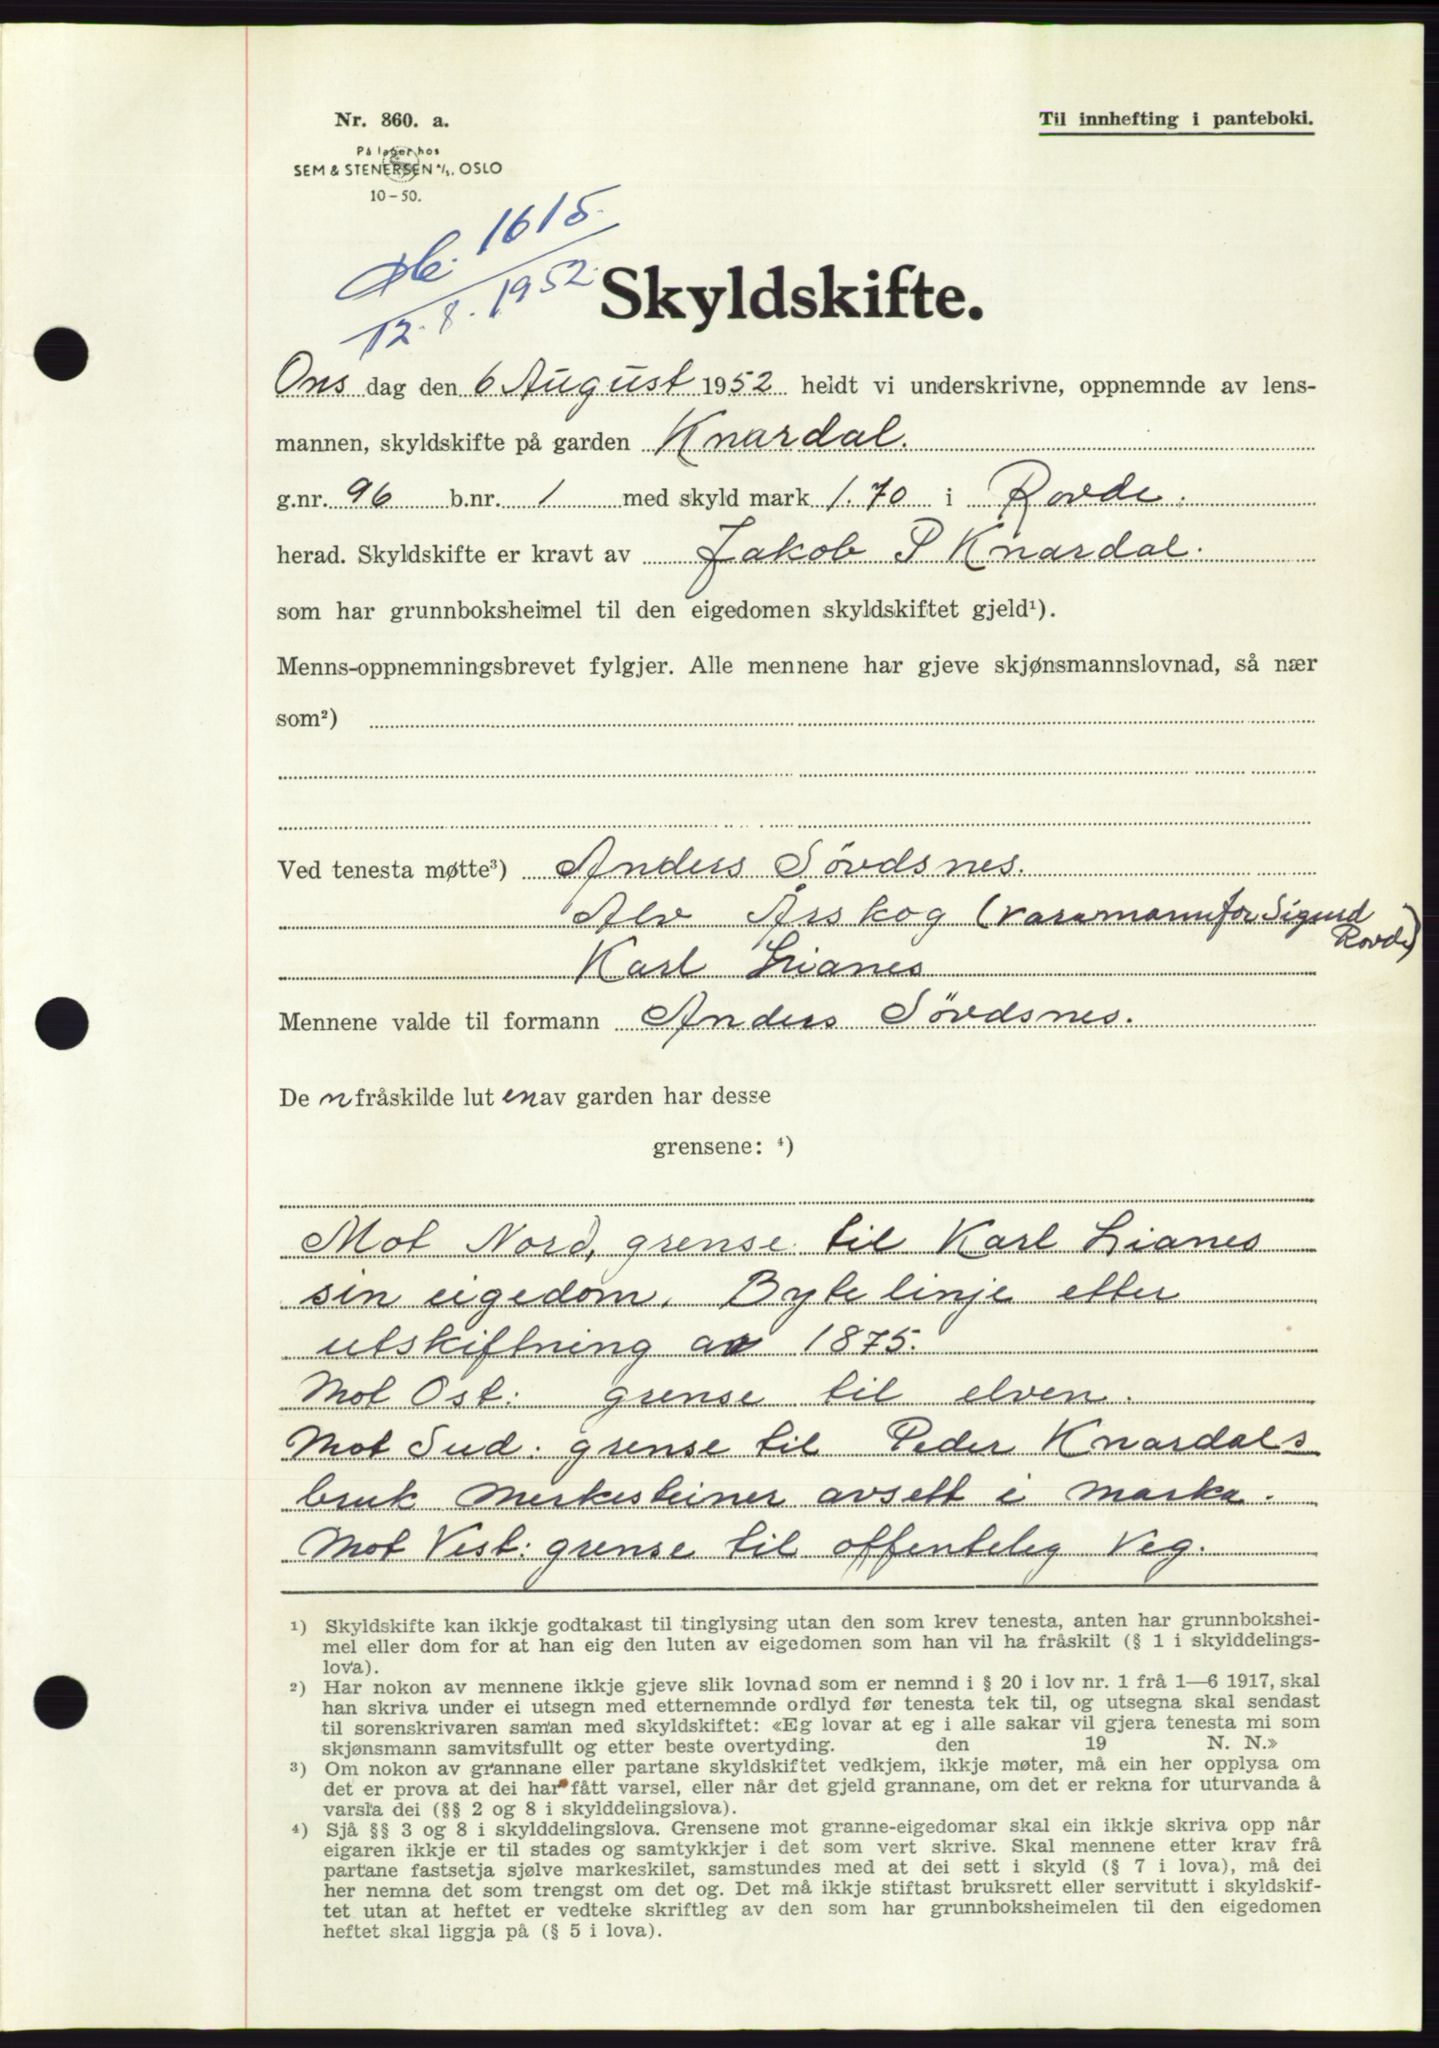 Nr. 860. a.
Til innhefting i panteboki.
På lager hos
SEM & STENERSEN A/S, OSLO
10-50.
Db. 1615.
12.8.1952.
Skyldskifte.
Ons dag den 6 August 1952 heldt vi underskrivne, oppnemnde av lens-
mannen, skyldskifte på garden Knardal.
g.nr. 96 b.nr. 1 med skyld mark 1.70 i Rovde.
herad. Skyldskifte er kravt av Jakob P Knardal.
som har grunnboksheimel til den eigedomen skyldskiftet gjeld¹).
Menns-oppnemningsbrevet fylgjer. Alle mennene har gjeve skjønsmannslovnad, så nær
som²)
Ved tenesta møtte³) Anders Sövdsnes.
Alv Årskog (varamann for Sigurd
Rovde)
Karl Lianes
Mennene valde til formann Anders Sövdsnes.
De n fråskilde lut en av garden har desse
grensene: ⁴)
Mot Nord, grense til Karl Lianes
sin eigedom. Byte linje etter
utskiftning av 1875.
Mot Ost: grense til elven.
Mot Sud: grense til Peder Knardals
bruk merkesteiner avsett i marka.
Mot Vest: grense til offenteleg Veg.
¹) Skyldskifte kan ikkje godtakast til tinglysing utan den som krev tenesta, anten har grunnbokshei-
mel eller dom for at han eig den luten av eigedomen som han vil ha fråskilt (§ 1 i skylddelings-
lova).
²) Har nokon av mennene ikkje gjeve slik lovnad som er nemnd i § 20 i lov nr. 1 frå 1—6 1917, skal
han skriva under ei utsegn med etternemnde ordlyd før tenesta tek til, og utsegna skal sendast
til sorenskrivaren saman med skyldskiftet: «Eg lovar at eg i alle sakar vil gjera tenesta mi som
skjønsmann samvitsfullt og etter beste overtyding. den 19 N. N.»
³) Om nokon av grannane eller partane skyldskiftet vedkjem, ikkje møter, må ein her opplysa om
det er prova at dei har fått varsel, eller når det gjeld grannane, om det er rekna for uturvanda å
varsla dei (§§ 2 og 8 i skylddelingslova).
⁴) Sjå §§ 3 og 8 i skylddelingslova. Grensene mot granne-eigedomar skal ein ikkje skriva opp når
eigaren ikkje er til stades og samtykkjer i det som vert skrive. Skal mennene etter krav frå
partane fastsetja sjølve markeskilet, samstundes med at dei sett i skyld (§ 7 i lova), må dei
her nemna det som trengst om det og. Det må ikkje stiftast bruksrett eller servitutt i skyldskif-
tet utan at heftet er vedteke skriftleg av den som har grunnboksheimelen til den eigedomen
heftet skal liggja på (§ 5 i lova).